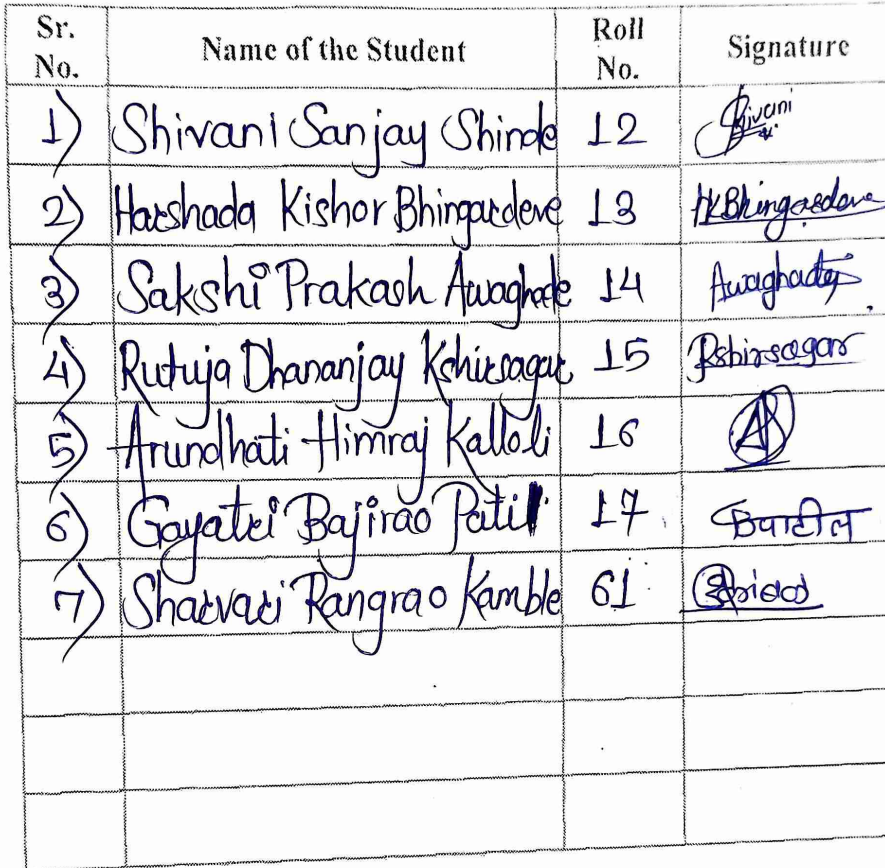 Sr. No. Name of the Student Roll No. Signature
1) Shivani Sanjay Shinde 12 Shivani
2) Harshada Kishor Bhingardeve 13 HKBhingardeve
3) Sakshi Prakash Awaghade 14 Awaghade
4) Rutuja Dhananjay Kshirsagar 15 Rshirsagar
5) Arundhati Himraj Kalloli 16
6) Gayatri Bajirao Patil 17
7) Sharvari Rangrao Kamble 61